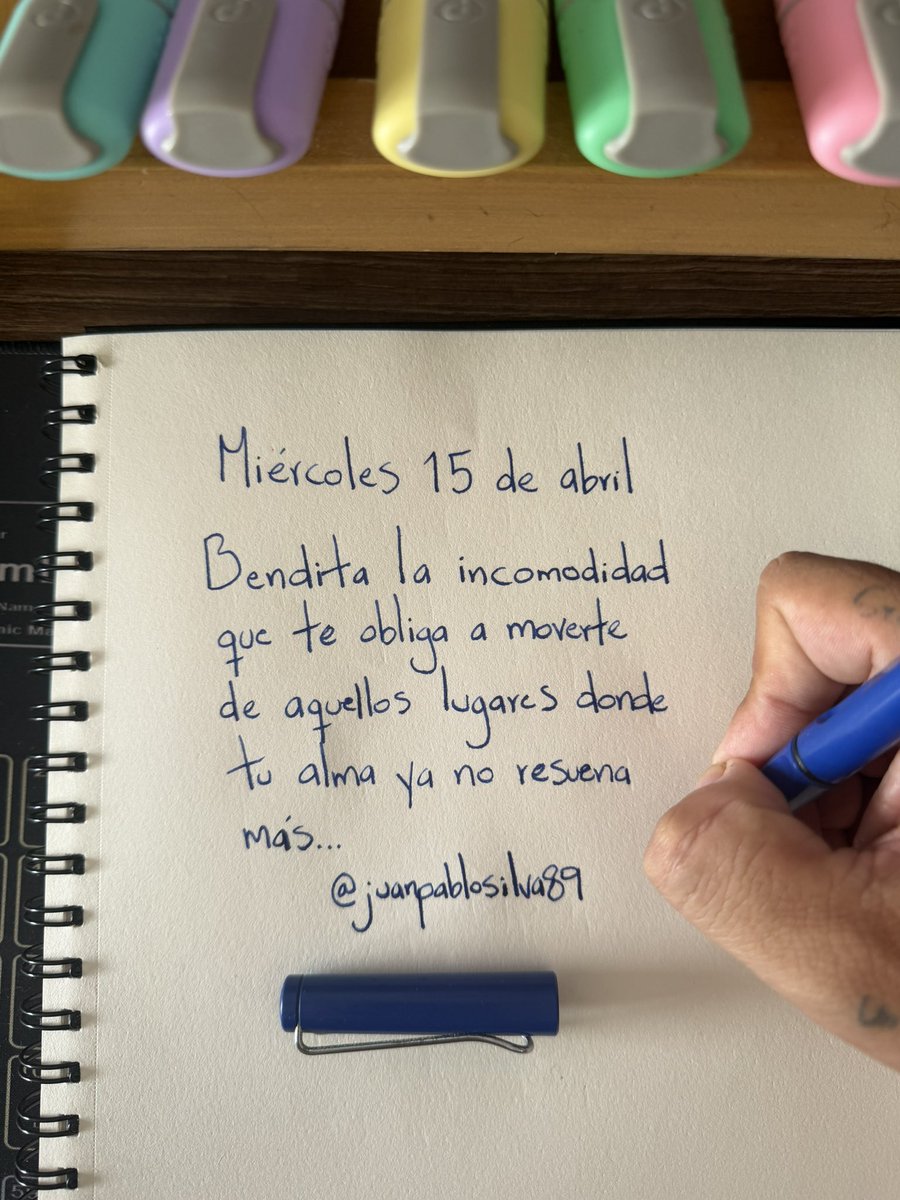 Miércoles 15 de abril
Bendita la incomodidad
que te obliga a moverte
de aquellos lugares donde
tu alma ya no resuena
más...
@juanpablosilva89